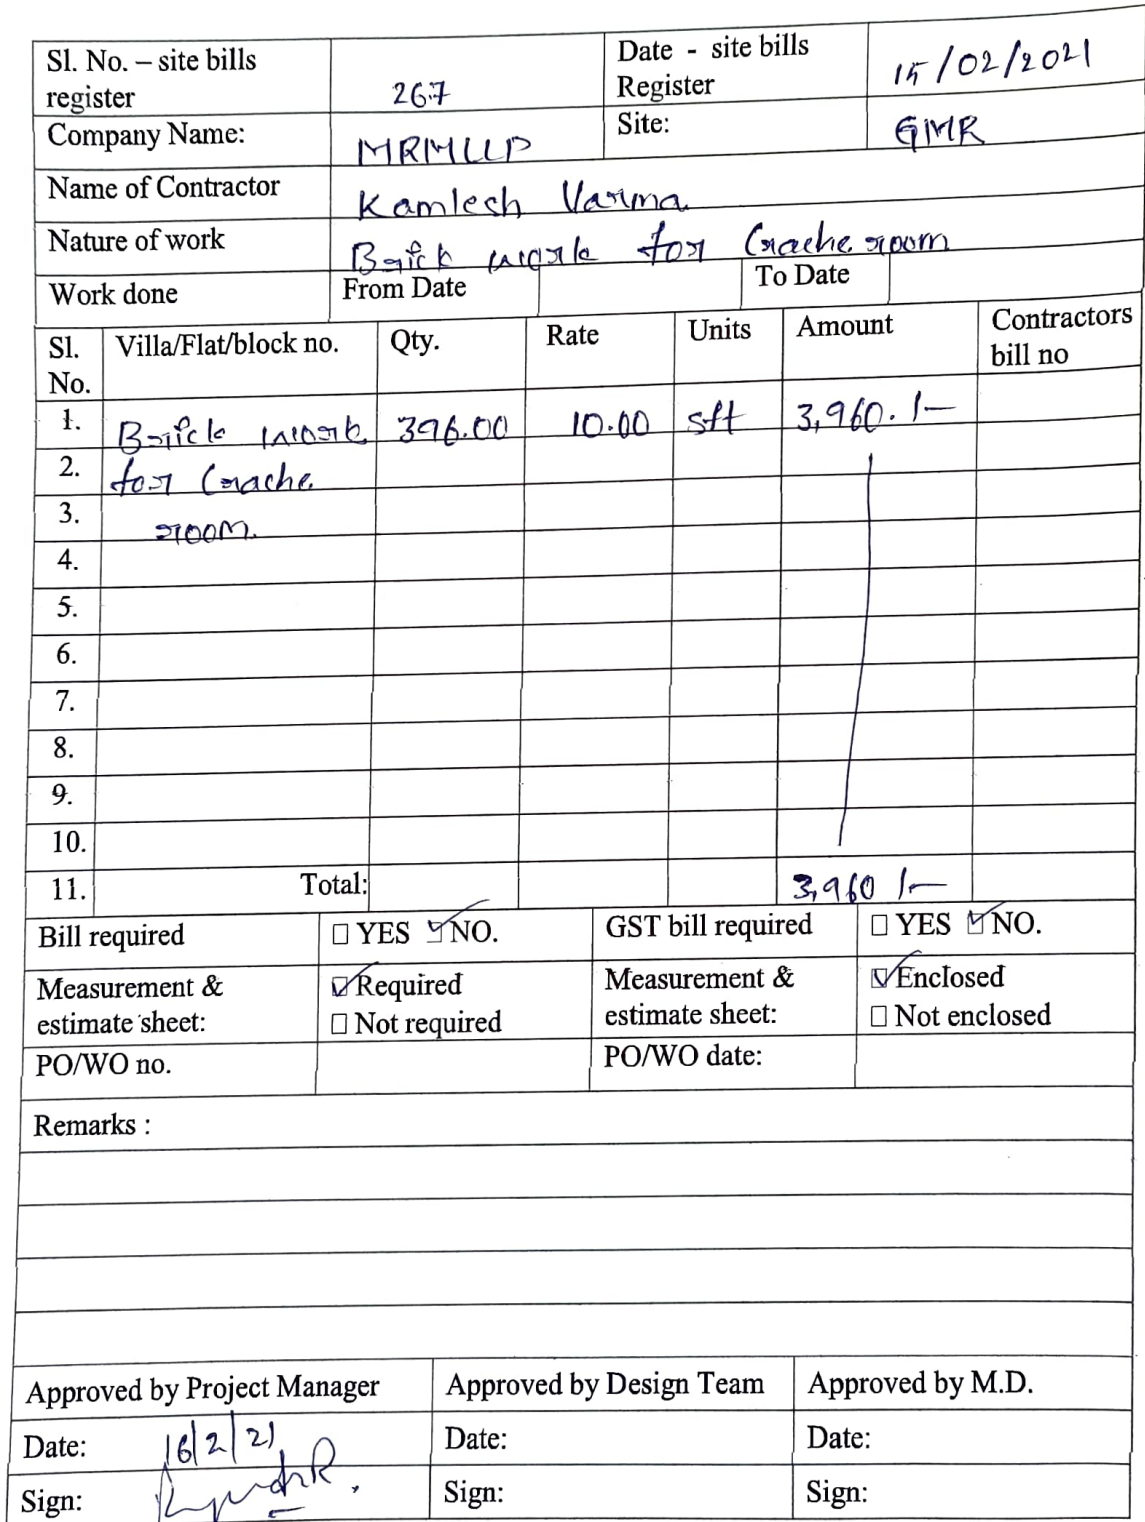 Sl. No. – site bills register 267 Date - site bills Register 15/02/2021
Company Name: MRMLLP Site: GMR
Name of Contractor Kamlesh Varma
Nature of work Brick work for Crache room
Work done From Date To Date
Sl. No. Villa/Flat/block no. Qty. Rate Units Amount Contractors bill no
1. Brick work 396.00 10.00 sft 3,960. /-
2. for Crache
3. room.
4.
5.
6.
7.
8.
9.
10.
11. Total: 3,960 /-
Bill required ☐ YES ☑ NO. GST bill required ☐ YES ☑ NO.
Measurement & estimate sheet: ☑ Required ☐ Not required Measurement & estimate sheet: ☑ Enclosed ☐ Not enclosed
PO/WO no. PO/WO date:
Remarks :
Approved by Project Manager Approved by Design Team Approved by M.D.
Date: 16/2/21 Date: Date:
Sign: Sign: Sign: